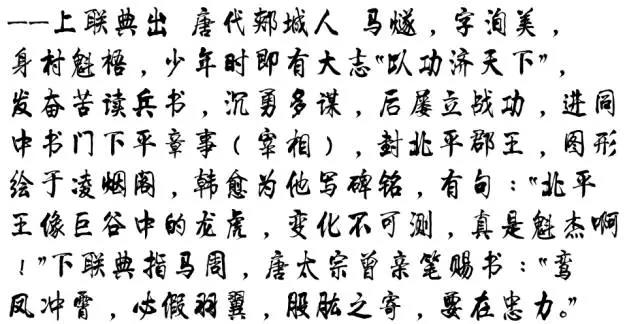 ——上联典出 唐代郏城人 马燧，字洵美，
身材魁梧，少年时即有大志“以功济天下”，
发奋苦读兵书，沉勇多谋，后屡立战功，进同
中书门下平章事（宰相），封北平郡王，图形
绘于凌烟阁，韩愈为他写碑铭，有句：“北平
王像巨谷中的龙虎，变化不可测，真是魁杰啊
！”下联典指马周，唐太宗曾亲笔赐书：“鸾
凤冲霄，必假羽翼，股肱之寄，要在忠力。”